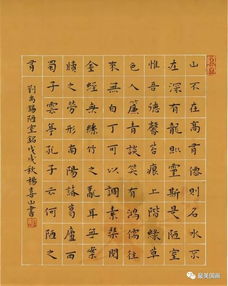 山不在高有德則名水不
在深有龍則靈斯是陋室
惟吾德馨苔痕上階綠草
色入簾青談笑有鴻儒往
來無白丁可以調素琴閱
金經無絲竹之亂耳無案
牘之勞形南陽諸葛廬西
蜀子雲亭孔子云何陋之
有
劉禹錫陋室銘戊戌秋楊喜山書
最美国画